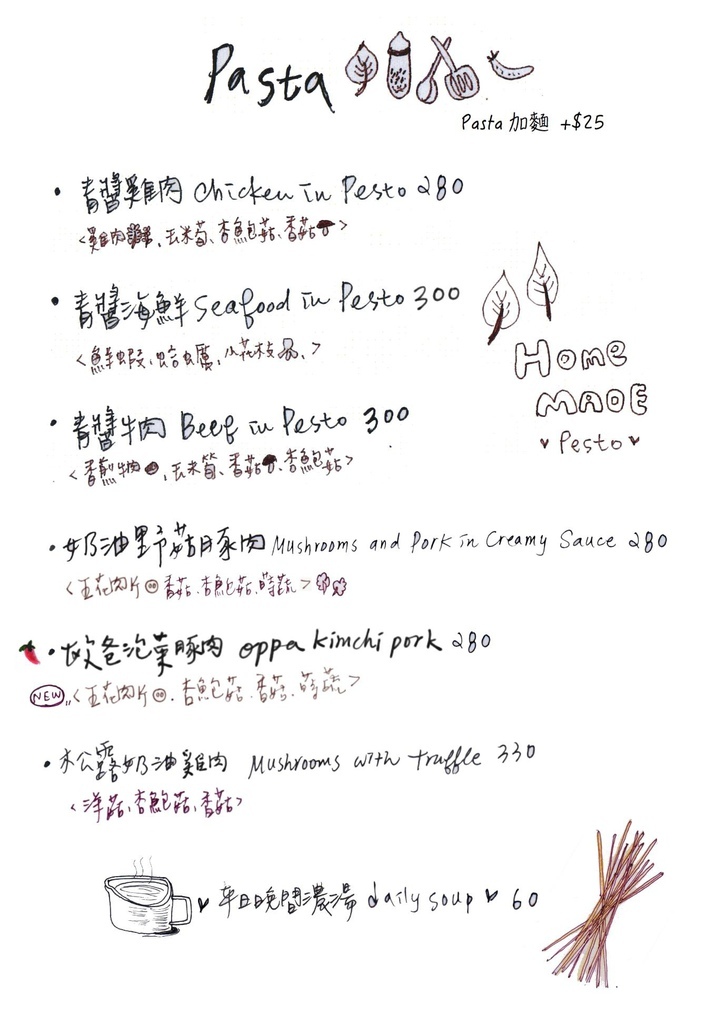 Pasta
Pasta 加麵 +$25
• 青醬雞肉 Chicken in Pesto 280
<雞肉、玉米筍、杏鮑菇、香菇>
• 青醬海鮮 Seafood in Pesto 300
<鮮蝦、蛤蠣、小花枝、>
Home
MADE
Pesto
• 青醬牛肉 Beef in Pesto 300
<香煎牛肉、玉米筍、香菇、杏鮑菇>
• 奶油野菇豚肉 Mushrooms and Pork in Creamy Sauce 280
<五花肉片、香菇、杏鮑菇、時蔬>
• 歐爸泡菜豚肉 oppa kimchi pork 280
NEW <五花肉片、杏鮑菇、香菇、時蔬>
• 松露奶油雞肉 Mushrooms with truffle 330
<洋菇、杏鮑菇、香菇>
平日晚間濃湯 daily soup 60